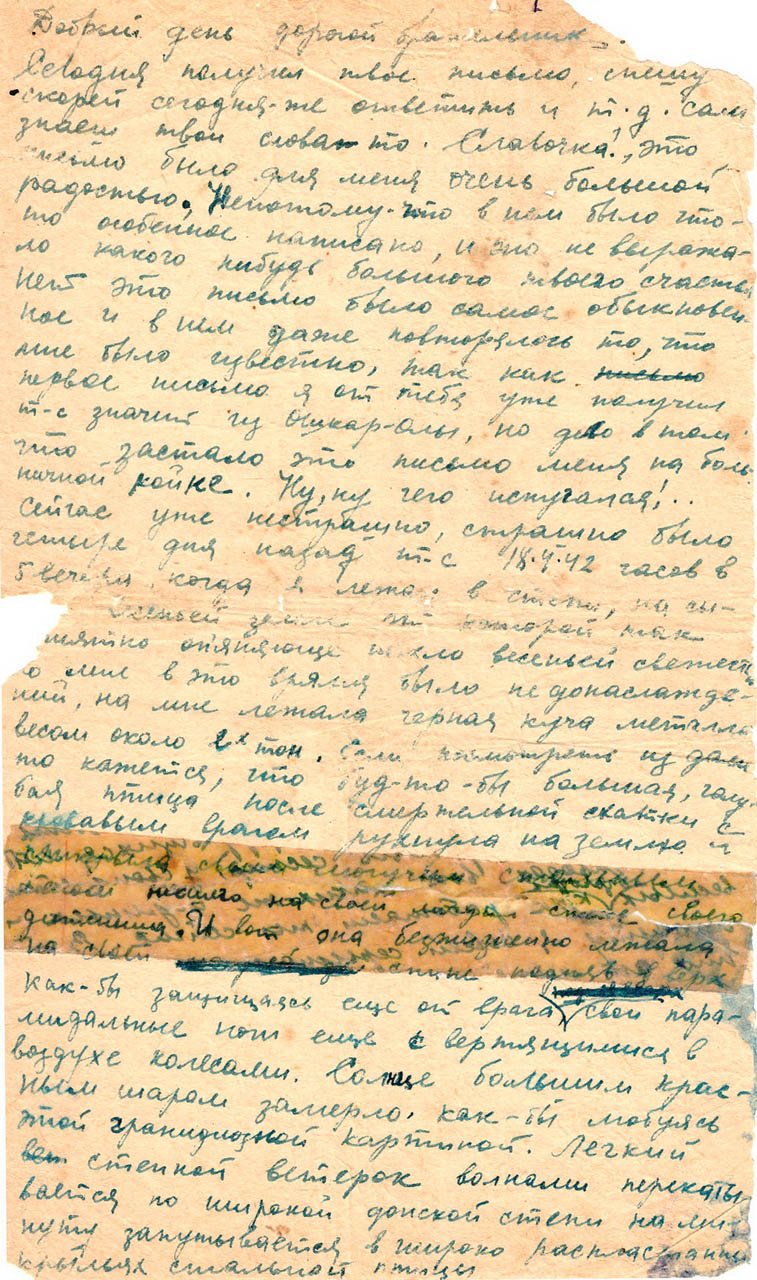 Добрый день дорогой брательник.
Сегодня получил твое письмо, спешу
скорей сегодня-же ответить и т.д. сам
знаеш твои слова-то. Славочка!, это
письмо было для меня очень большой
радостью. Непотому-что в нем было что-
то особенное написано, и это не выража-
ло какого нибудь большого твоего счастья
нет это письмо было самое обыкновен-
ное и в нем даже повторялось то, что
мне было известно, так как письмо
первое письмо я от тебя уже получил
т-с значит из Ошкар-олы, но дело в том
что застало это письмо меня на боль-
ничной койке. Ну, ну чего испугался!..
Сейчас уже нестрашно, страшно было
четыре дня назад т-с 18.4.42 часов в
5 вечера, когда я лежал в степи, на сы-
земле от которой так
опяняюще пахло весеньей свежестью
мне в это время было не донаслажде-
ний, на мне лежала черная куча металла
весом около 2х тон. Если посмотреть из дали
то кажется, что буд-то-бы большая, голу-
бая птица после смертельной схватки с
кровавым врагом рухнула на землю и
своего
детеныша. И вот она безжизненно лежала
на своей спине подняв в верх
как-бы защищаясь еще от врага свои пара-
мидальные ноги еще с вертящимися в
воздухе колесами. Солнце большим крас-
ным шаром замерло, как-бы любуясь
этой грандиозной картиной. Легкий
степной ветерок волнами перекаты-
вается по широкой донской степи на ми-
нуту запутывается в широко распластанных
крыльях стальной птицы